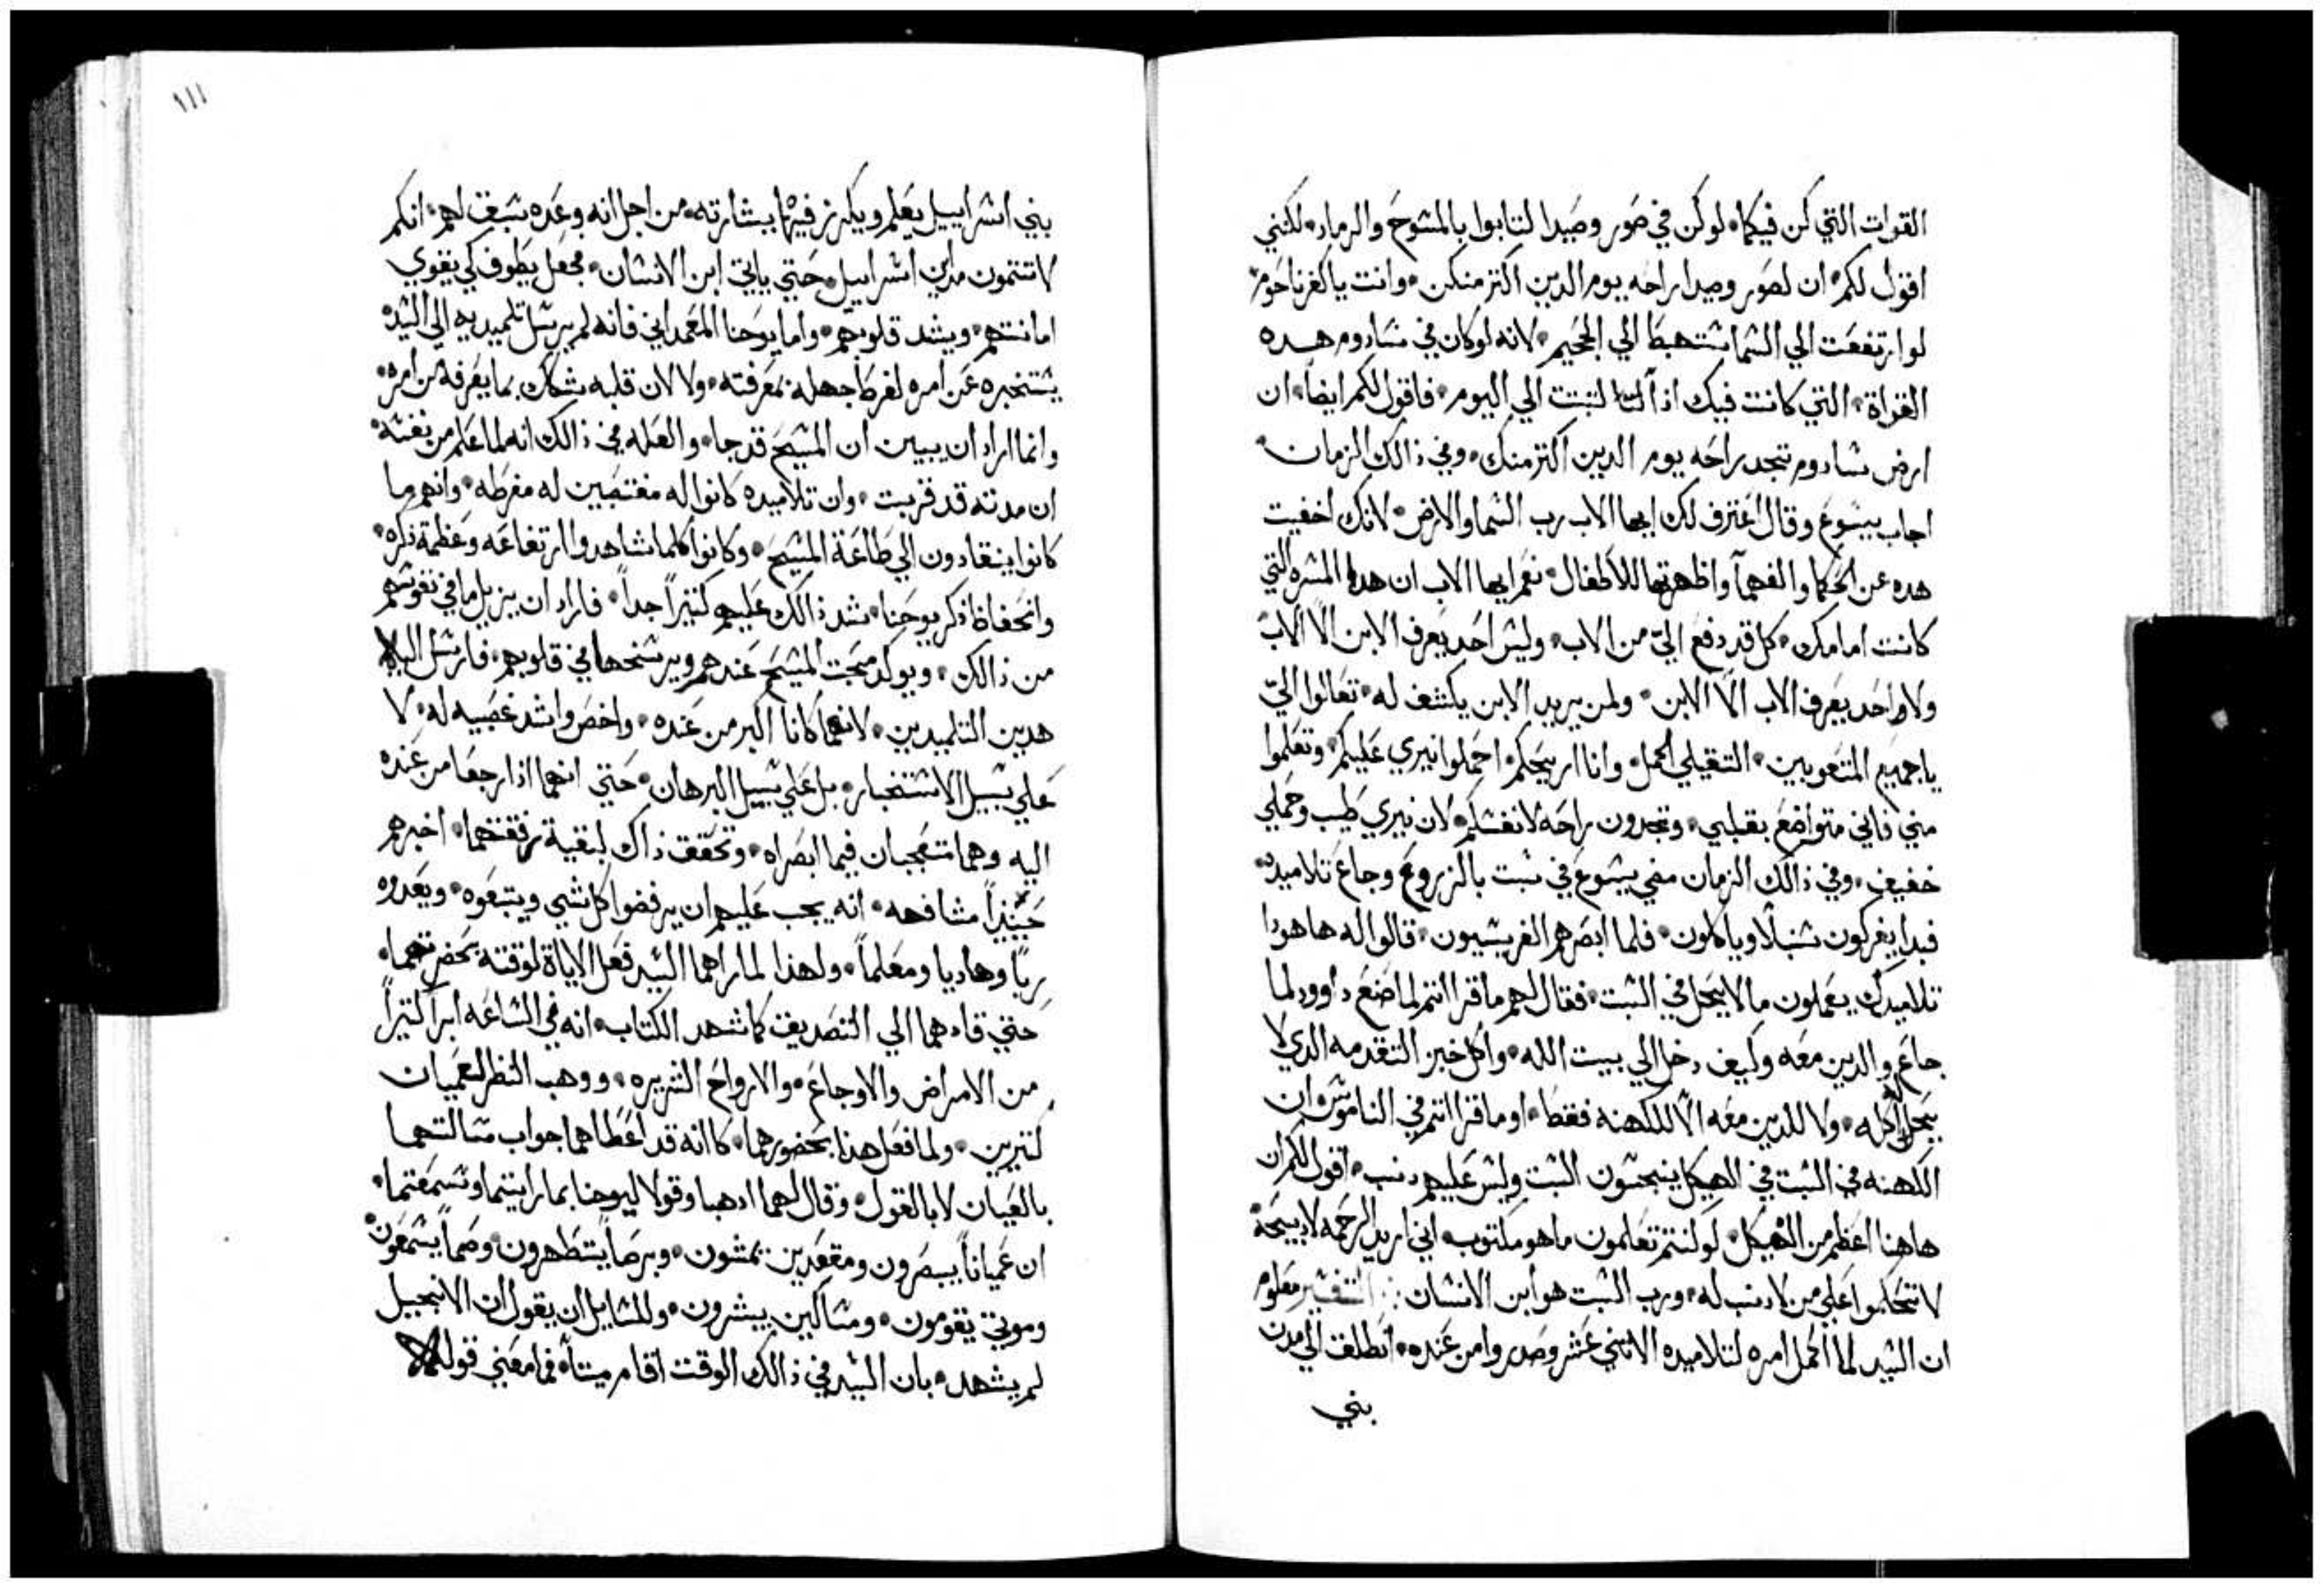 القوات التي كن فيكما لو كن في صور وصيدا لتابوا بالمشوح والرماد لكنني
اقول لكم ان لصور وصيدا راحه يوم الدين اكتر منكن وانت يا كفرناحوم
لو ارتفعت الي الشما ستهبط الي الجحيم لانه لو كان في سادوم هده
القواة التي كانت فيك اذاً لثبت الي اليوم فاقول لكم ايضاً ان
ارض سادوم تجد راحه يوم الدين اكتر منك وفي ذالك الزمان
اجاب يسوع وقال اعترف لك ايها الاب رب السما والارض لانك اخفيت
هده عن الحكما والفهمآ واظهرتها للاطفال نعم ايها الاب ان هده المسره التي
كانت امامك كل قد دفع اليّ من الاب وليس احد يعرف الابن الّا الاب
ولا واحد يعرف الاب الّا الابن ولمن يريد الابن يكشف له تعالوا اليّ
يا جميع المتعوبين التقيلي الحمل وانا اريحكم احملوا نيري عليكم وتعلموا
مني فاني متواضع بقبلبي وتجدون راحه لانفسكم لان نيري طيب وحملي
خفيف وفي ذالك الزمان مضي يسوع في سبت بالزروع وجاع تلاميده
فبدا يفركون سنبلًا وياكلون فلما ابصرهم الفريسيون قالوا له ها هودا
تلاميدك يعملون ما لا يحل في السبت فقال لهم ما قراانتم لما ضنع داوود لما
جاع والدين معه وكيف دخل الي بيت الله واكل خبز التقدمه الدي لا
يحل اكله ولا للدين معه الّا للكهنه فقط او ما قراانتم في الناموس ان
الكهنه في السبت في الهيكل ينجسون السبت وليس عليهم دنب اقول لكم ان
هاهنا اعظم من الهيكل لو كنتم تعلمون ما هو مكتوب اني اريد الرحمه لا دبيحة
لا تحكموا علي من لا دنب له ورب السبت هو ابن الانسان التفسير معلوم
ان السيد لما اكمل امره لتلاميده الاتني عشر وصدروا من عنده انطلق الي مدن
بني
١١١
بني اسراييل يعلم ويكرز فيها ببشارته من اجل انه وعده سبق لهم انكم
لا تتمون مداين اسراييل حتي ياتي ابن الانسان فجعل يطوف كي يقوي
امانتهم ويشد قلوبهم واما يوحنا المعمداني فانه لم يرسل تلميديه الي السيد
يستخبره عن امره لفرط جهله بمعرفته ولا لان قلبه شاك بما يعرفه من امره
وانما اراد ان يبين ان المسيح قد جا والعله في ذالك انه لما علم من نفسه
ان مدته قد قربت وان تلاميده كانوا له مغتصبين له مفرطه وانهم ما
كانوا ينقادون الي طاعة المسيح وكانوا كلما شاهدوا ارتفاعه وعظمة ذكره
وانحفاظ ذكر يوحنا شد ذالك عليهم كتيراً جداً فاراد ان يزيل ما في نفوسهم
من ذالك ويوكد محبت المسيح عندهم ويرسخها في قلوبهم فارسل اليه
هدين التلميدين لانهما كانا اكبر من عنده واخص واشد غصبيه له لا
علي سبيل الاستخبار بل علي سبيل البرهان حتي انهما اذا رجعا من عنده
اليه وهما متعجبان فيما ابصراه وتحقق ذاك لبقية رفقتهما اخبرهم
حينيذاً مشافهه انه يجب عليهم ان يرفضوا كل شي ويتبعوه ويعدوه
رباً وهاديا ومعلماً ولهذا لما راهما السيد فعل الاياة لوقته بحضرتهما
حتي قادهما الي التصديق كما شهد الكتاب انه في الساعه ابرا كتيراً
من الامراض والاوجاع والارواح الشريره ووهب النظر لعميان
كتيرين ولما فعل هذا بحضورهما كاانه قد اعطاهما جواب مسالتهما
بالعيان لا بالقول وقال لهما ادهبا وقولا ليوحنا بما رايتما وسمعتما
ان عمياناً يبصرون ومقعدين يمشون وبرصاً يتطهرون وصماً يسمعون
وموتي يقومون ومساكين يبشرون وللسايل ان يقول ان الانجيل
لم يشهد بان السيد في ذالك الوقت اقام ميتاً فما معني قوله